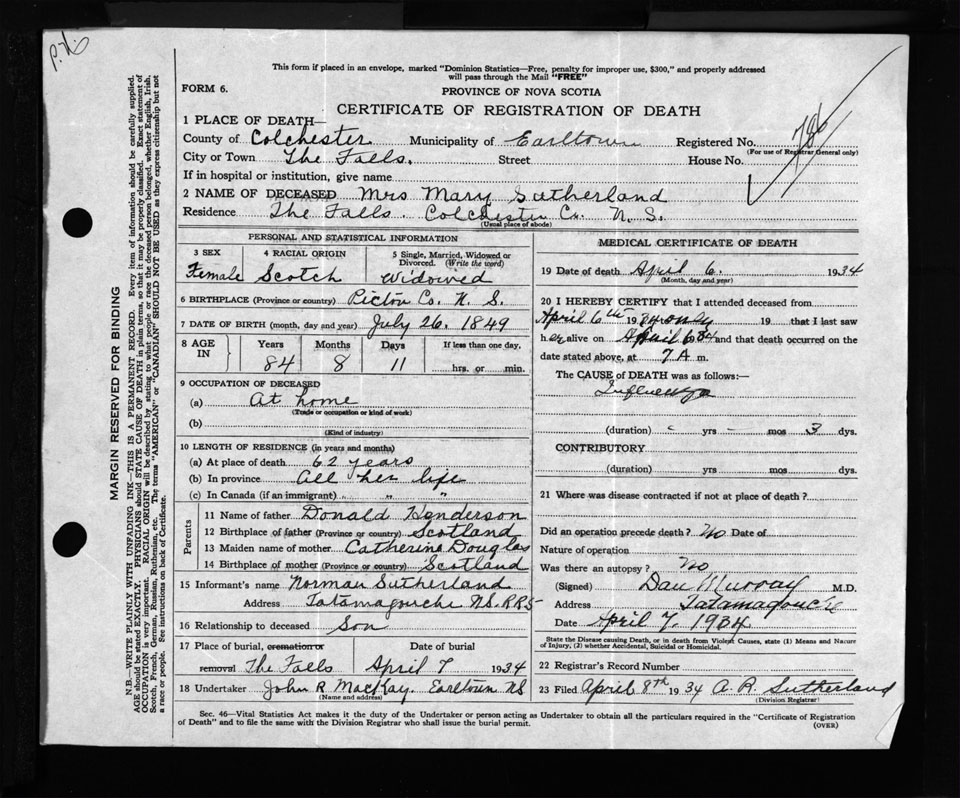 P.N.
This form if placed in an envelope, marked "Dominion Statistics—Free, penalty for improper use, $300," and properly addressed
will pass through the Mail "FREE"
FORM 6.
PROVINCE OF NOVA SCOTIA
CERTIFICATE OF REGISTRATION OF DEATH
1 PLACE OF DEATH—
County of Colchester Municipality of Earltown Registered No. 786
(For use of Registrar General only)
City or Town The Falls. Street House No.
If in hospital or institution, give name
2 NAME OF DECEASED Mrs Mary Sutherland
Residence The Falls. Colchester Co. N. S.
(Usual place of abode)
PERSONAL AND STATISTICAL INFORMATION
3 SEX 4 RACIAL ORIGIN 5 Single, Married, Widowed or
Divorced. (Write the word)
Female Scotch Widowed
6 BIRTHPLACE (Province or country) Pictou Co. N. S.
7 DATE OF BIRTH (month, day and year) July 26. 1849
8 AGE IN Years Months Days If less than one day,
84 8 11 hrs. or min.
9 OCCUPATION OF DECEASED
(a) At home
(Trade or occupation or kind of work)
(b)
(Kind of industry)
10 LENGTH OF RESIDENCE (in years and months)
(a) At place of death 62 years
(b) In province All her life
(c) In Canada (if an immigrant) " " "
Parents
11 Name of father Donald Henderson
12 Birthplace of father (Province or country) Scotland
13 Maiden name of mother Catherine Douglas
14 Birthplace of mother (Province or country) Scotland
15 Informant's name Norman Sutherland
Address Tatamagouche N.S. RR5
16 Relationship to deceased Son
17 Place of burial, cremation or Date of burial
removal The Falls April 7 1934
18 Undertaker John R MacKay. Earltown NS
(Name and address)
MEDICAL CERTIFICATE OF DEATH
19 Date of death April 6. 1934
(Month, day and year)
20 I HEREBY CERTIFY that I attended deceased from
April 6th 1934 only 19 that I last saw
her alive on April 6 34 and that death occurred on the
date stated above, at 7 A m.
The CAUSE of DEATH was as follows:—
Influenza
(duration) - yrs - mos 3 dys.
CONTRIBUTORY
(duration) yrs mos dys.
21 Where was disease contracted if not at place of death?
Did an operation precede death? No Date of
Nature of operation
Was there an autopsy? No
(Signed) Dan Murray M.D.
Address Tatamagouche
Date April 7. 1934
State the Disease causing Death, or in death from Violent Causes, state (1) Means and Nature
of Injury, (2) whether Accidental, Suicidal or Homicidal.
22 Registrar's Record Number
23 Filed April 8th 1934 A. R. Sutherland
(Division Registrar)
Sec. 46—Vital Statistics Act makes it the duty of the Undertaker or person acting as Undertaker to obtain all the particulars required in the "Certificate of Registration
of Death" and to file the same with the Division Registrar who shall issue the burial permit.
(OVER)
MARGIN RESERVED FOR BINDING
N.B.—WRITE PLAINLY WITH UNFADING INK—THIS IS A PERMANENT RECORD. Every item of information should be carefully supplied.
AGE should be stated EXACTLY. PHYSICIANS should STATE CAUSE OF DEATH in plain terms, so that it may be properly classified. Exact statement of
OCCUPATION is very important. RACIAL ORIGIN will be described by stating to what people or race the deceased person belonged, whether English, Irish,
Scotch, French, German, Russian, Ruthenian, etc. The terms "AMERICAN" or "CANADIAN" SHOULD NOT BE USED as they express citizenship but not
a race or people. See instructions on back of Certificate.